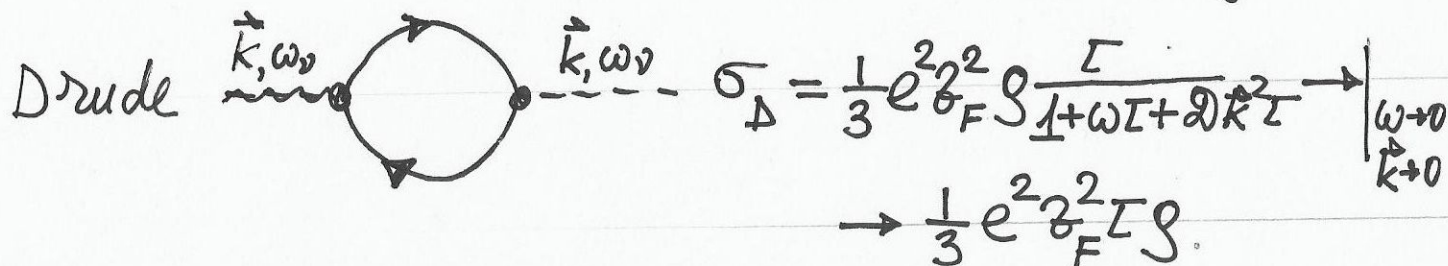 Drude k⃗, ω_ν k⃗, ω_ν σ_D = 1/3 e² v_F² ρ τ/(1+ωτ+Dk⃗²τ) → |_{ω→0, k⃗→0}
→ 1/3 e² v_F² τ ρ.